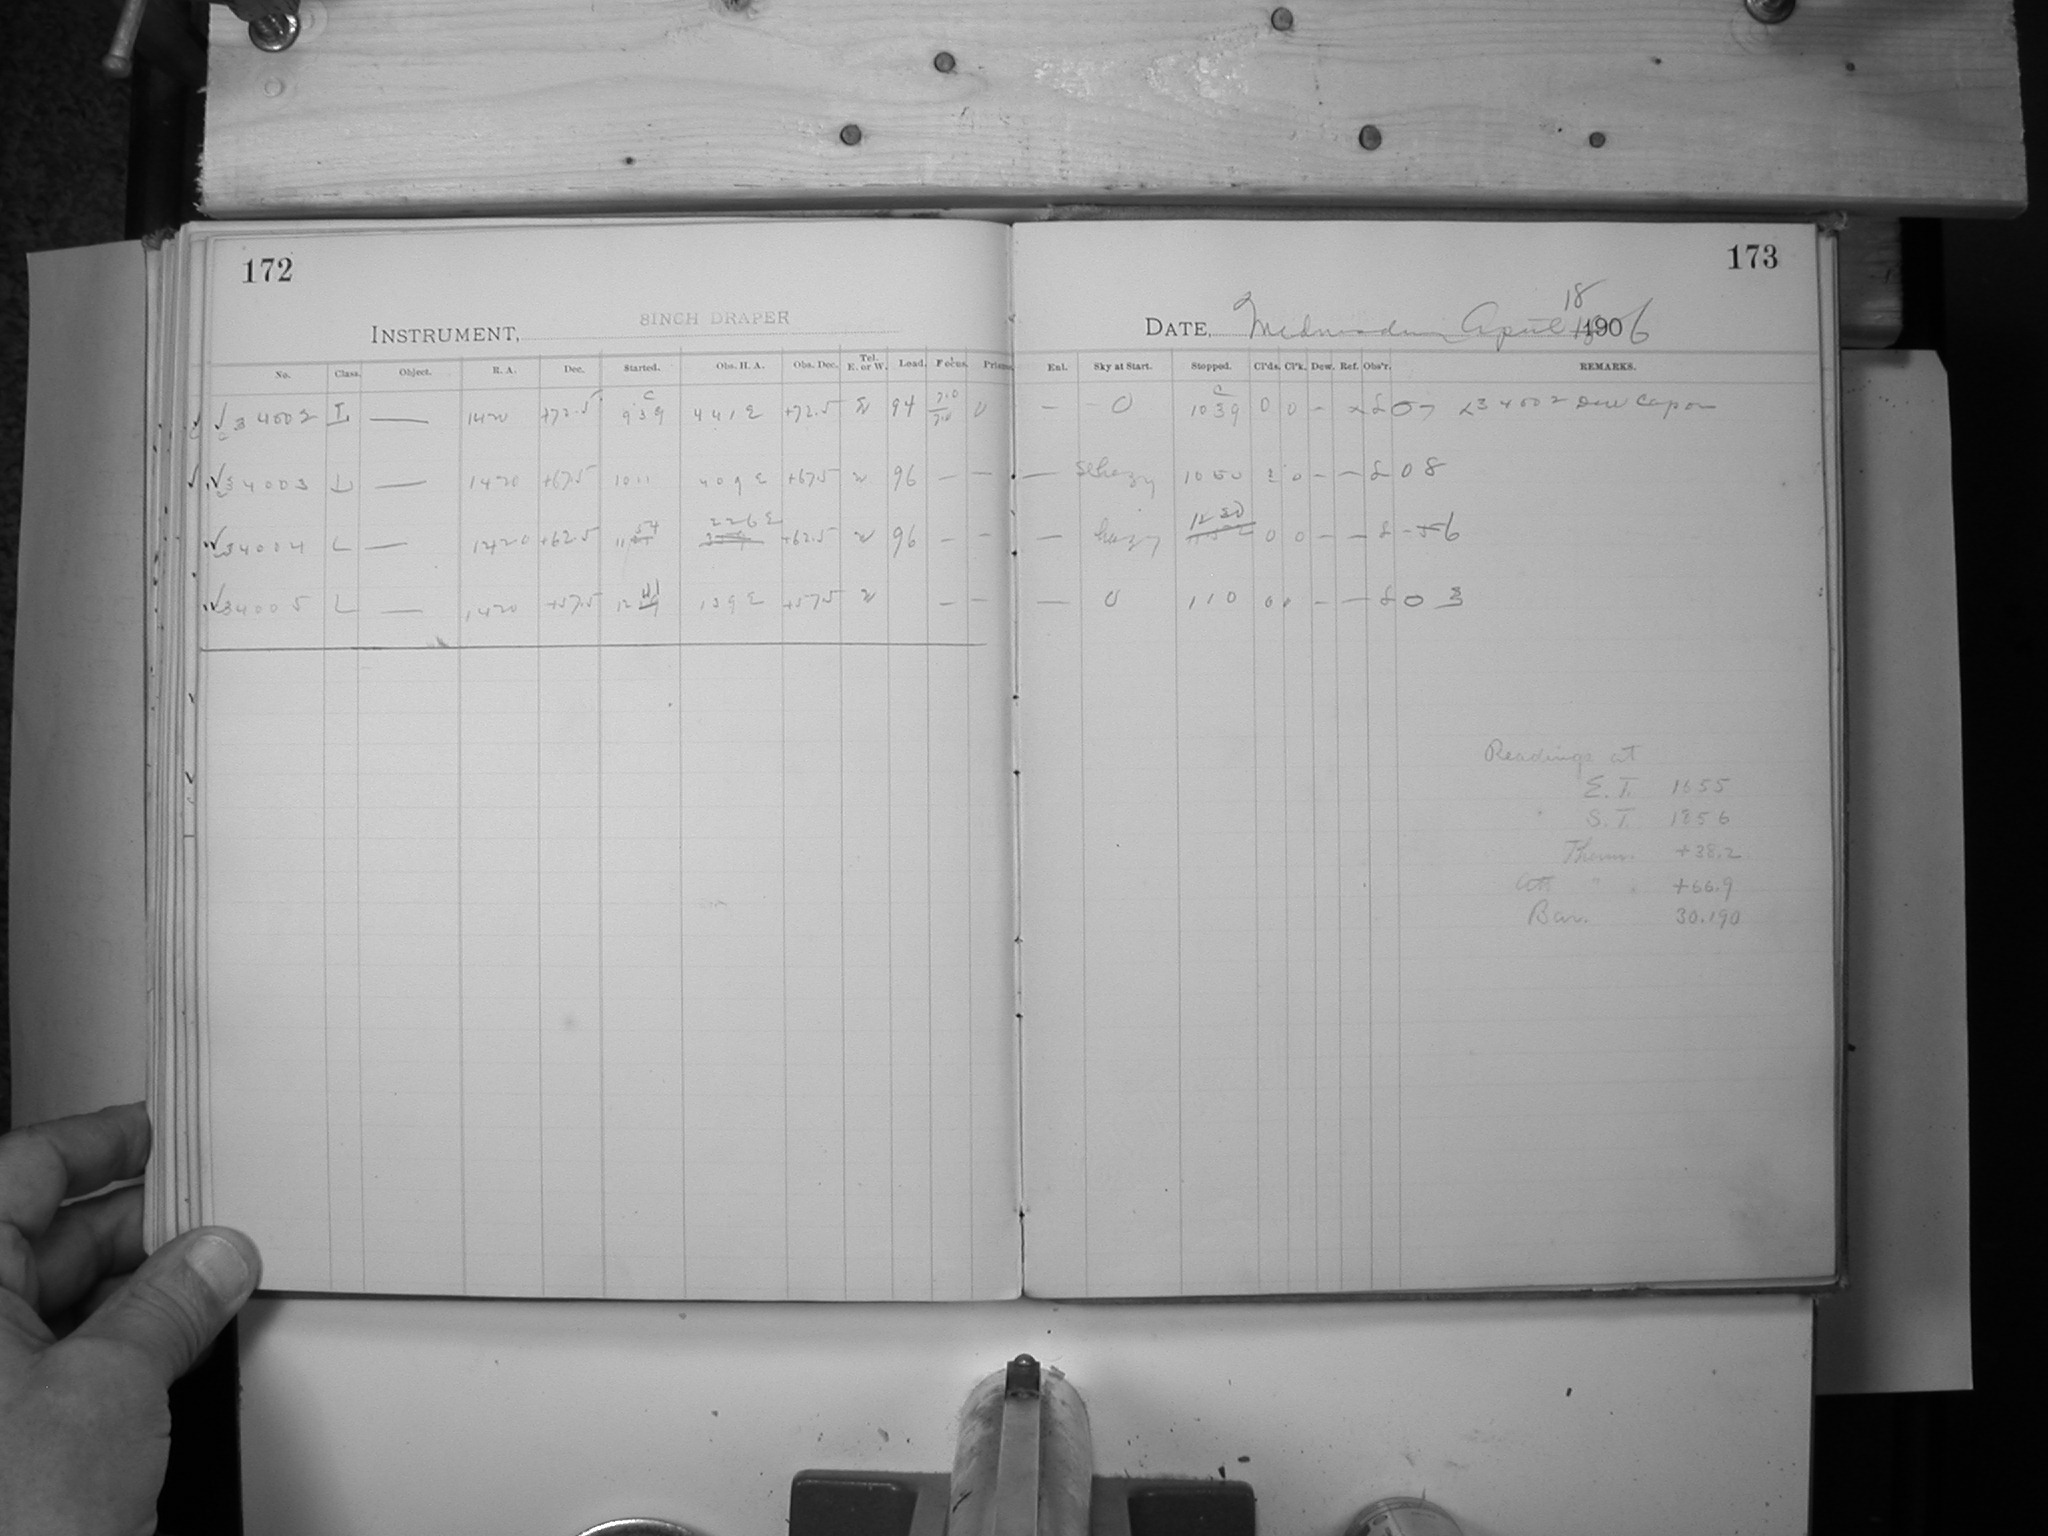 172
173
8INCH DRAPER
INSTRUMENT,
18
DATE, Wednesday April 1906
No. Class. Object. R. A. Dec. Started. Obs. H. A. Obs. Dec. Tel. E. or W. Load. Focus. Prisms. Enl. Sky at Start. Stopped. Cl'ds. Cl'k. Dew. Ref. Obs'r. REMARKS.
√ √ 34002 L — 1420 +72.5 9 39 4 41 E +72.5 94 7.0 7.0 0 — 0 10 39 0 0 — 07 34002 Dew Cap on
√ √ 34003 L — 1420 +67.5 10 11 4 09 E +67.5 W 96 — — — hazy 0 — — 08
√ 34004 L — 1420 +62.5 11 54 2 26 E +62.5 W 96 — — — hazy 12 30 0 0 — — 6
√ 34005 L — 1420 +57.5 12 41 1 39 E +57.5 W — — — 0 1 10 0 0 — — 03
Readings at
E. T. 1655
S. T. 1856
Therm. +38.2
Att " +66.9
Bar. 30.190